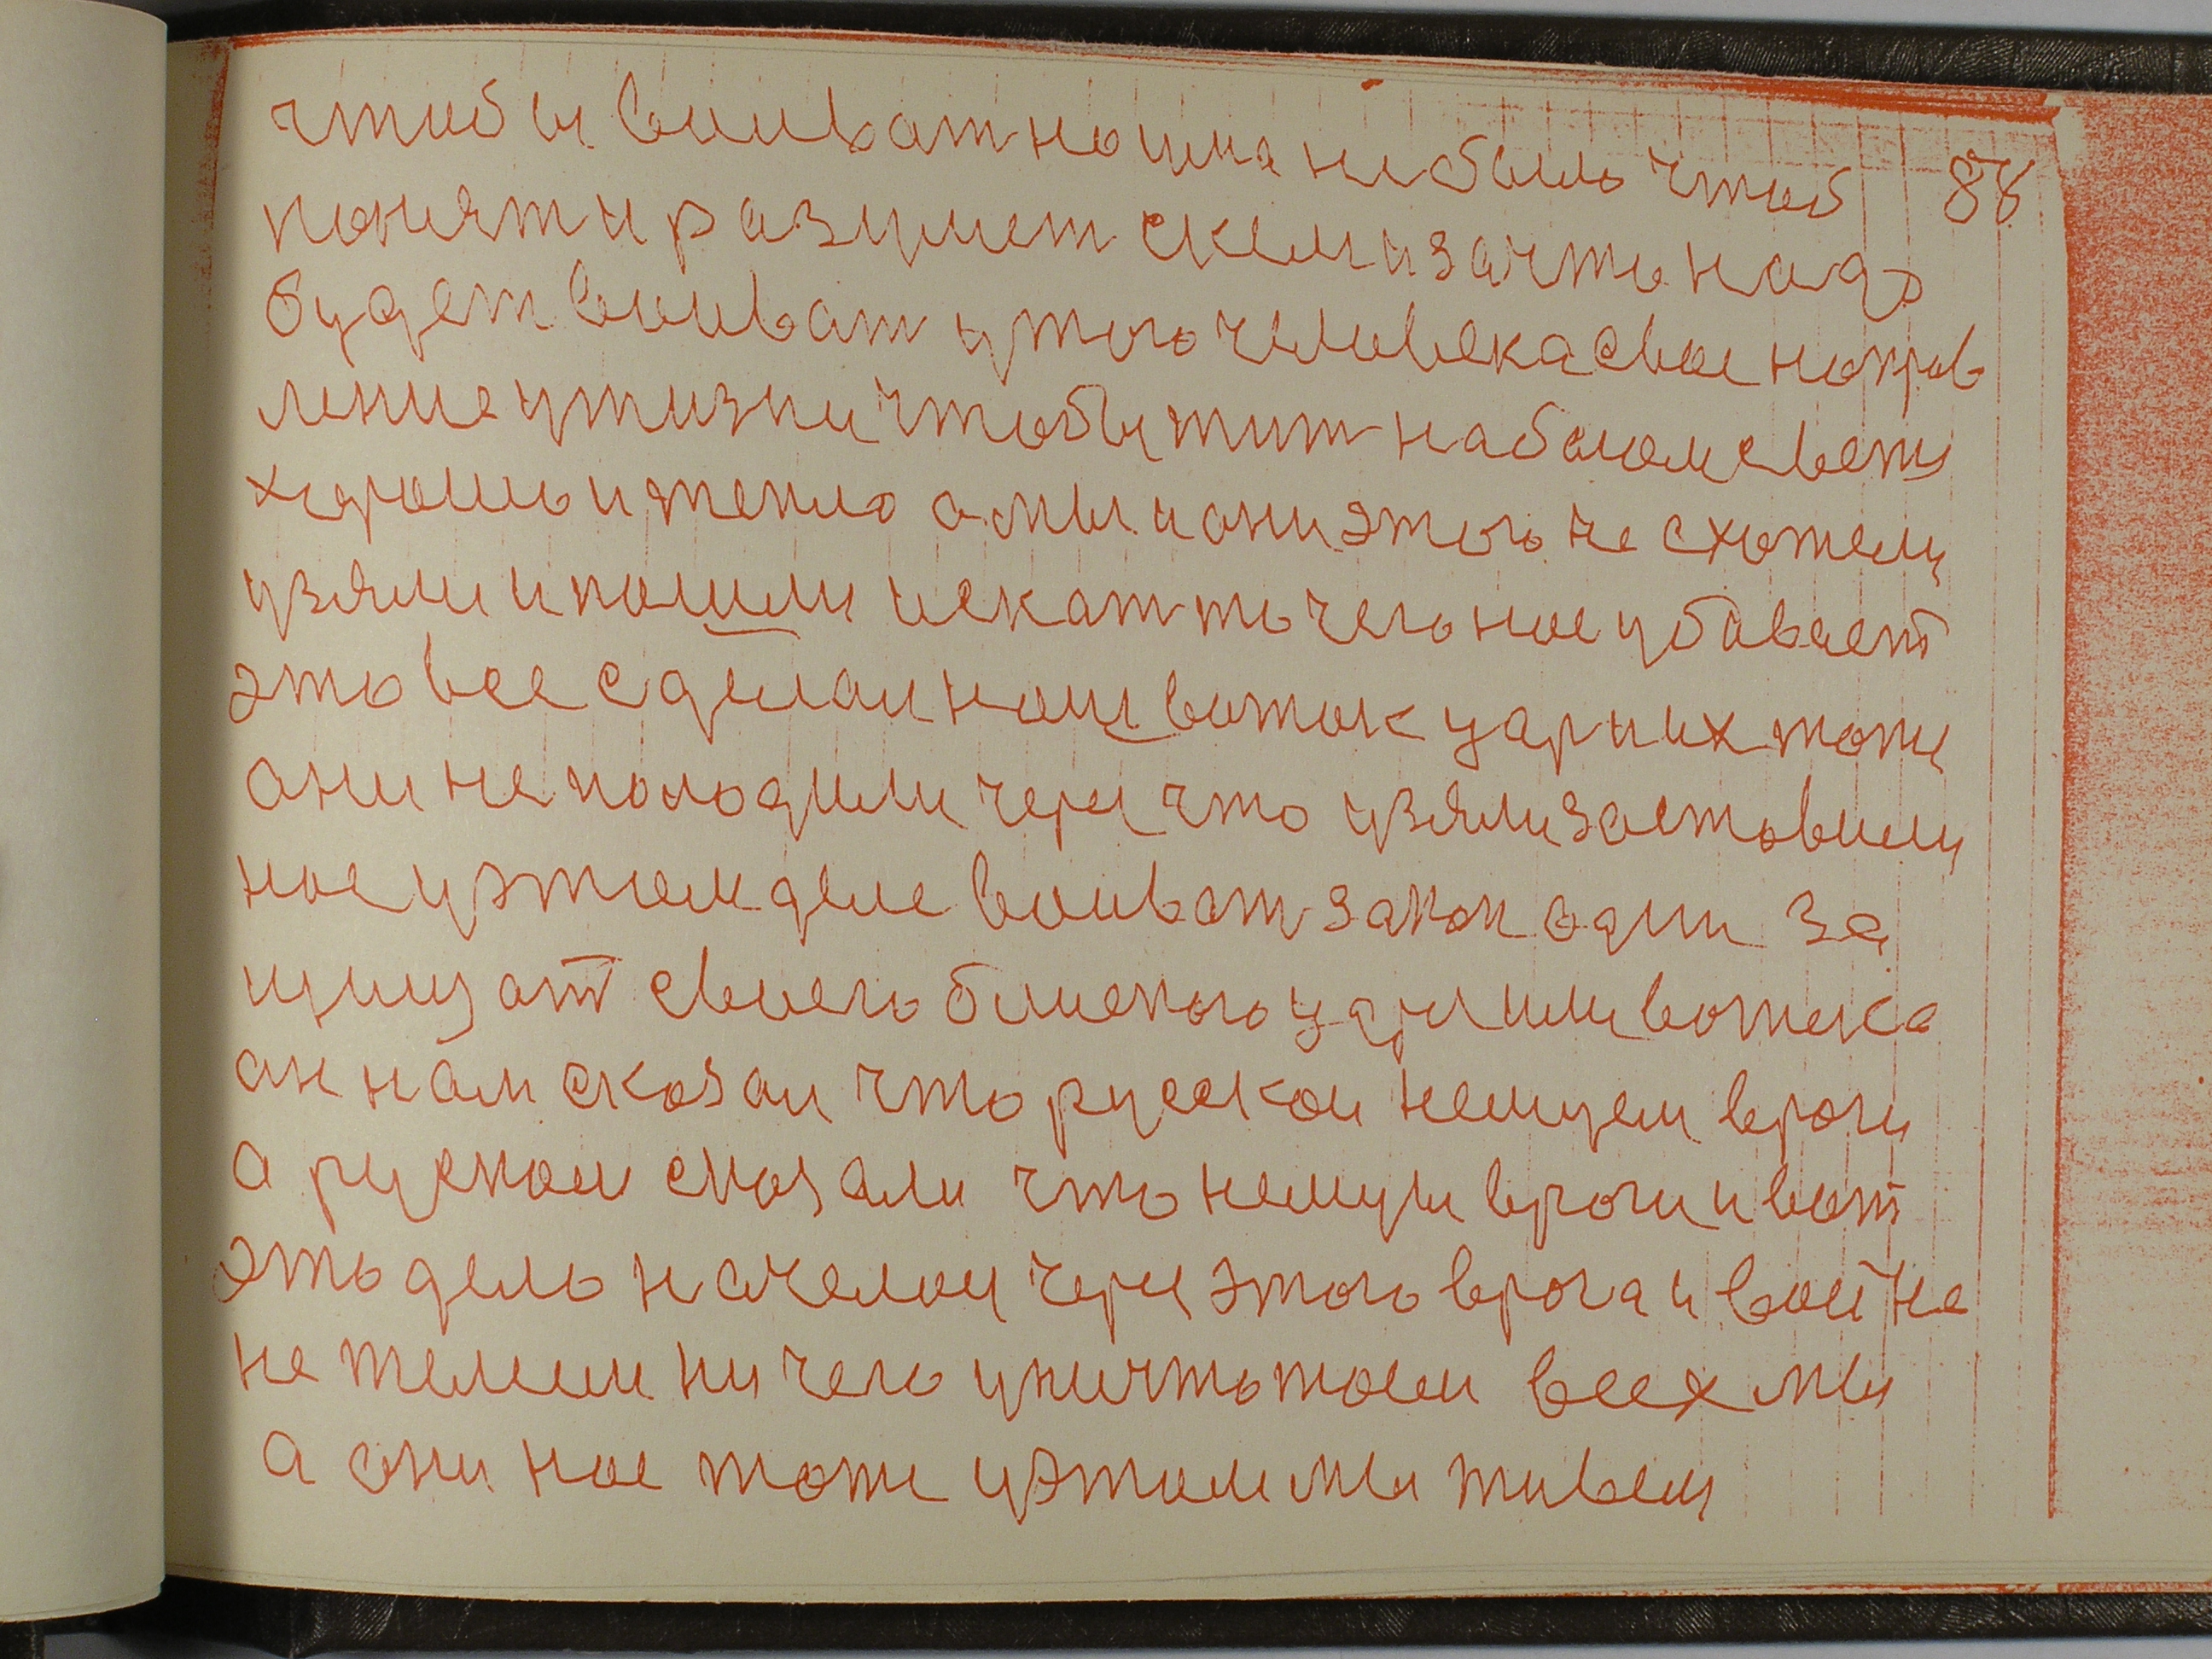 чтобы воиват но ума не было чтоб 88
понят и разумет скем изачто надо
будет воиват утого человека свое напров
ление ужизни чтобы жит набелом свете
хорошо и тепло а мы и они этого не схотели
узяли и пошли искат то чего нас убавает
это все сделал наш воток царь и их тоже
они не поладили через что узяли заставили
нас уэтом деле воиват закон один за
щищат своего близкого царя или вотека
он нам сказал что русскои немцем враги
а рускои сказали что немцы враги и вот
это дело началои через этого врага и войне
не жилеем ни чего уничтожаем всех мы
а они нас тоже уэтом мы живем